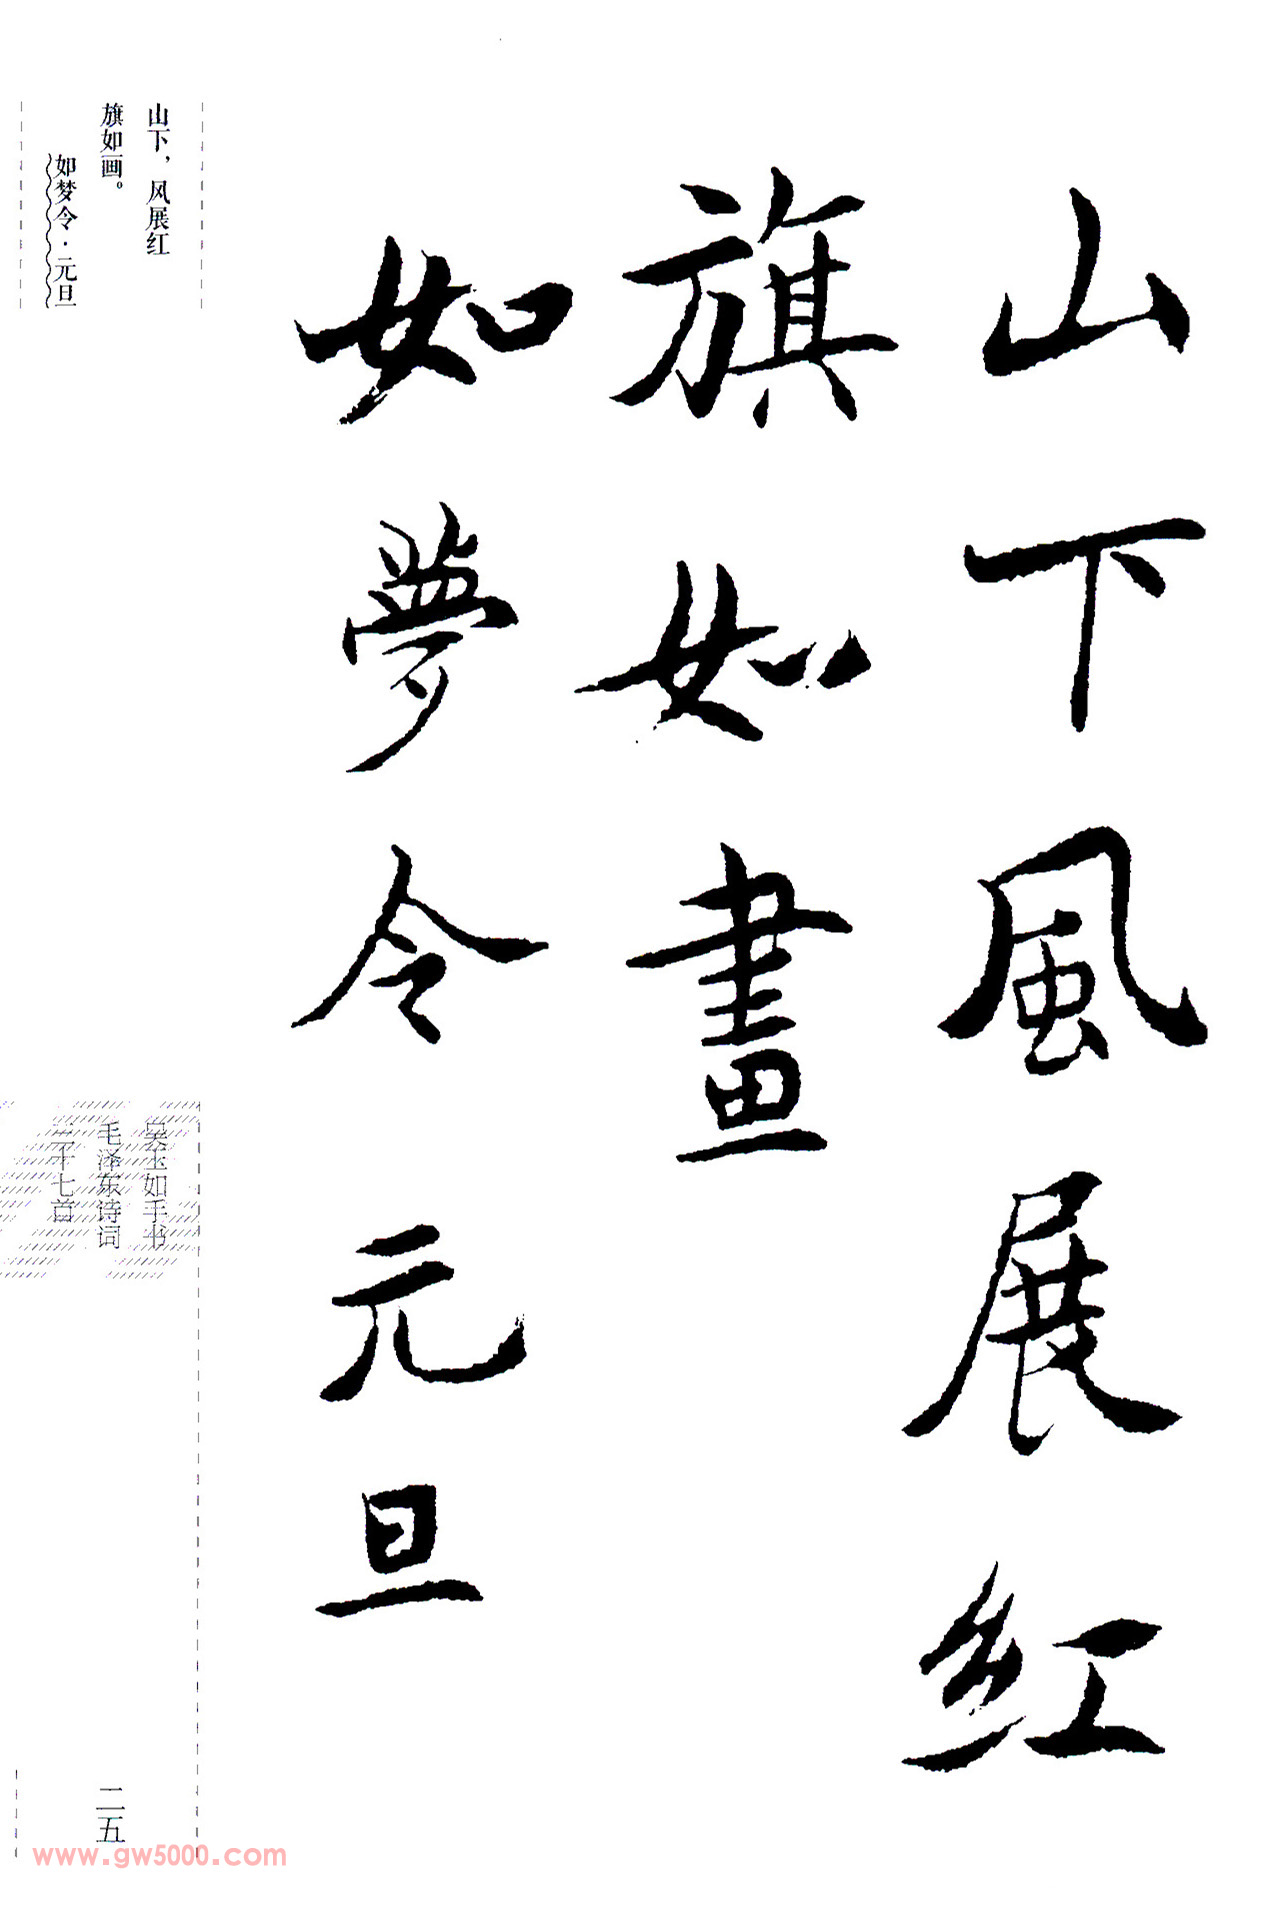 山下風展紅
旗如畫
如夢令元旦
山下，风展红
旗如画。
如梦令·元旦
吴玉如手书
毛泽东诗词
三十七首
二五
www.gw5000.com